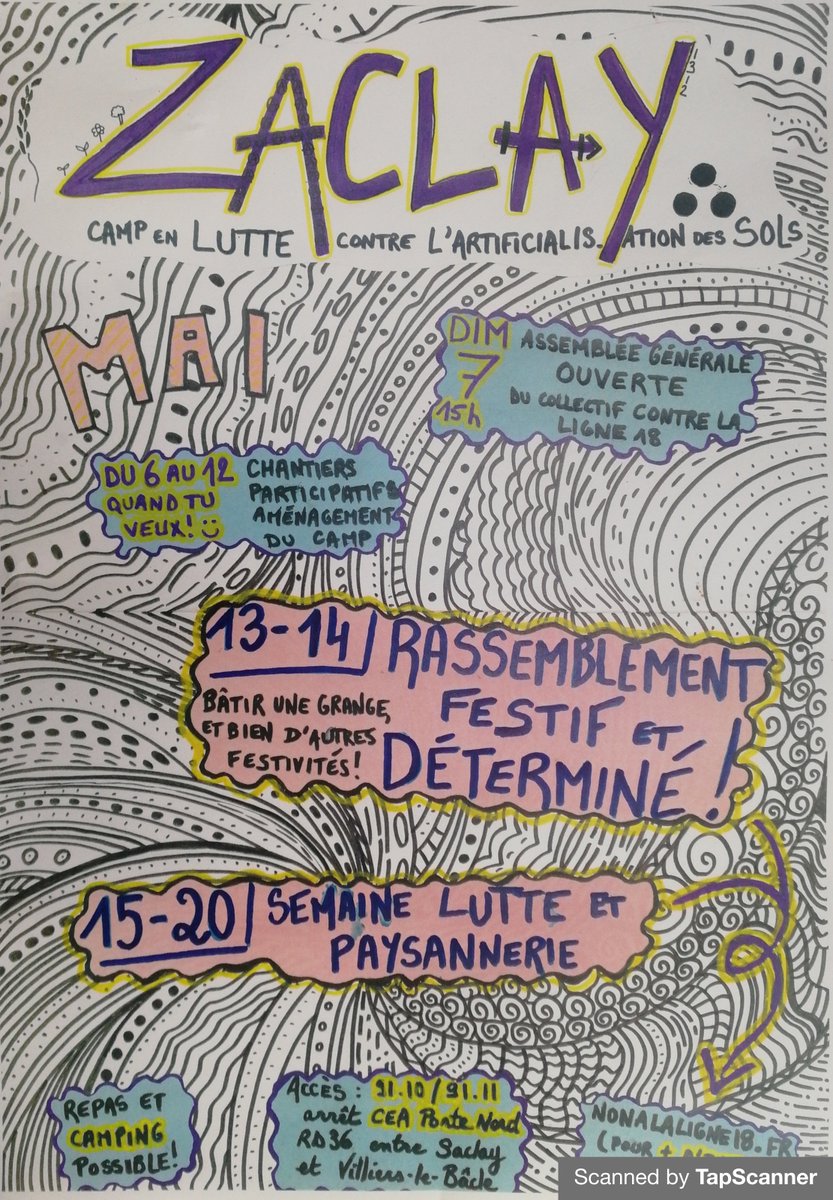 ZACLAY
1312
CAMP EN LUTTE CONTRE L'ARTIFICIALIS-ATION DES SOLS
MAI
DIM
7
15h
ASSEMBLÉE GÉNÉRALE
OUVERTE
DU COLLECTIF CONTRE LA
LIGNE 18
DU 6 AU 12
QUAND TU
VEUX!
CHANTIERS
PARTICIPATIFS
AMÉNAGEMENT
DU CAMP
13-14
BÂTIR UNE GRANGE,
ET BIEN D'AUTRES
FESTIVITÉS!
RASSEMBLEMENT
FESTIF ET
DÉTERMINÉ!
15-20
SEMAINE LUTTE ET
PAYSANNERIE
REPAS ET
CAMPING
POSSIBLE!
ACCÈS : 91.10/91.11
arrêt CEA Porte Nord
RD36 entre Saclay
et Villiers-le-Bâcle
NONALALIGNE18.FR
(POUR +
Scanned by TapScanner